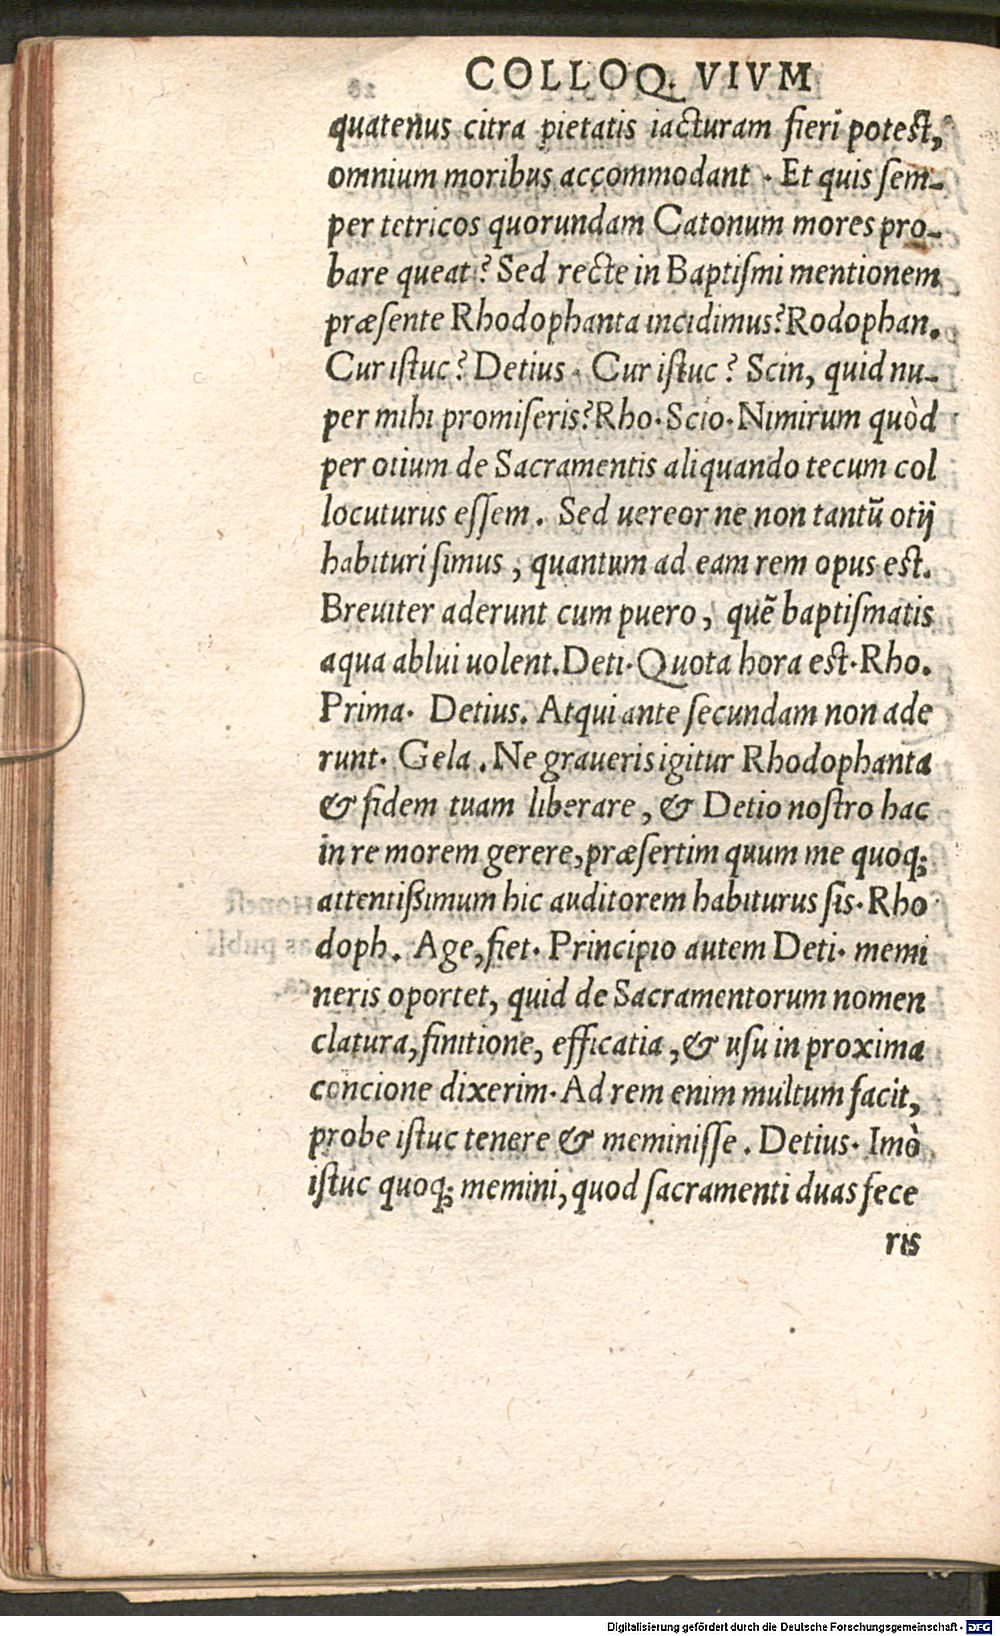 COLLOQ. VIVM
quatenus citra pietatis iacturam fieri potest,
omnium moribus accommodant . Et quis sem-
per tetricos quorundam Catonum mores pro-
bare queat? Sed recte in Baptismi mentionem
præsente Rhodophanta incidimus? Rodophan.
Cur istuc? Detius. Cur istuc? Scin, quid nu-
per mihi promiseris? Rho. Scio. Nimirum quòd
per otium de Sacramentis aliquando tecum col
locuturus essem. Sed uereor ne non tantũ otij
habituri simus, quantum ad eam rem opus est.
Breuiter aderunt cum puero, quẽ baptismatis
aqua ablui uolent. Deti. Quota hora est. Rho.
Prima. Detius. Atqui ante secundam non ade
runt. Gela. Ne graueris igitur Rhodophanta
& fidem tuam liberare, & Detio nostro hac
in re morem gerere, præsertim quum me quoq;
attentissimum hic auditorem habiturus sis. Rho
doph. Age, fiet. Principio autem Deti. memi
neris oportet, quid de Sacramentorum nomen
clatura, finitione, efficatia, & usu in proxima
concione dixerim. Ad rem enim multum facit,
probe istuc tenere & meminisse. Detius. Imò
istuc quoq; memini, quod sacramenti duas fece
ris
Digitalisierung gefördert durch die Deutsche Forschungsgemeinschaft - DFG